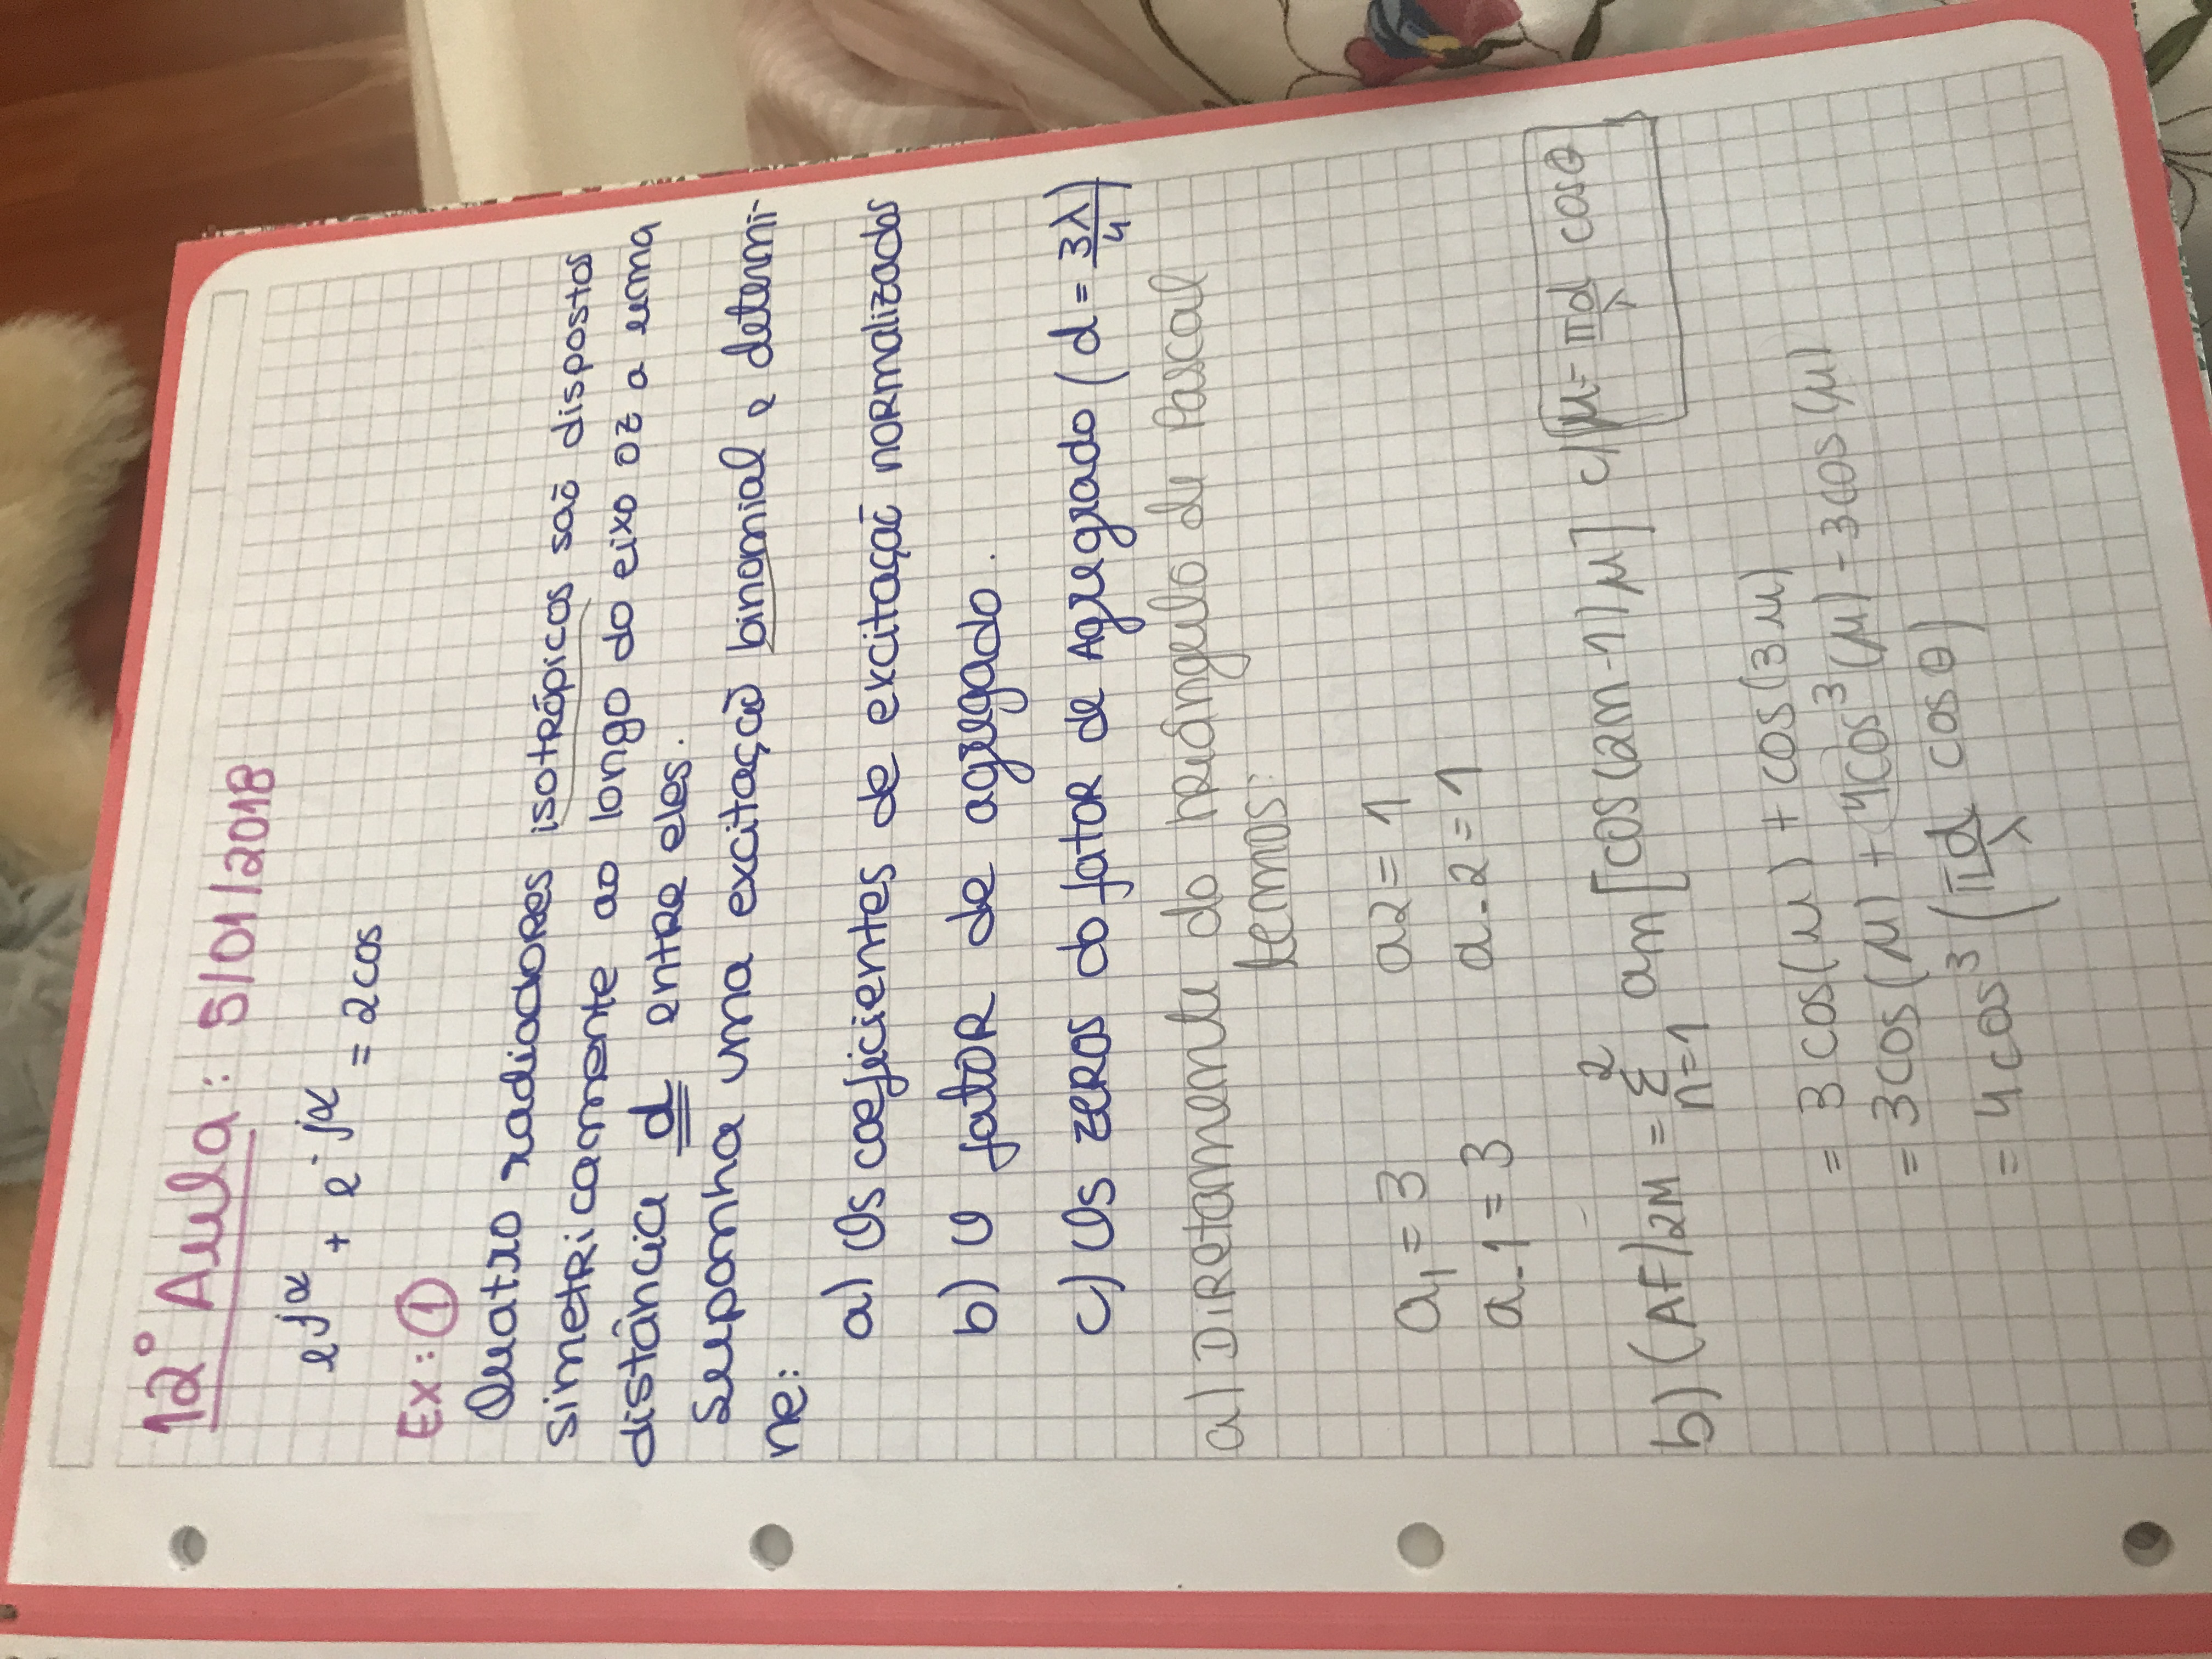 12° Aula: 5/01/2018
e^jα + e^-jα = 2cos
Ex: ①
Quatro radiadores isotrópicos saõ dispostos
simetricamente ao longo do eixo oz a uma
distância d entre eles.
Suponha uma excitaçaõ binomial e determi-
ne:
a) Os coeficientes de excitaçaõ normalizados
b) O fator de agregado.
c) Os zeros do fator de Agregrado (d = 3λ/4)
a) Diretamente do triângulo de Pascal
termos:
a₁ = 3 a2 = 1
a-1 = 3 a-2 = 1
b) (AF)2M = Σ_{n=1}^{2} an [cos(2n-1)μ] c/ μ = πd/λ cosθ
= 3 cos(μ) + cos(3μ)
= 3cos(μ) + 4cos³(μ) - 3cos(μ)
= 4cos³(πd/λ cosθ)